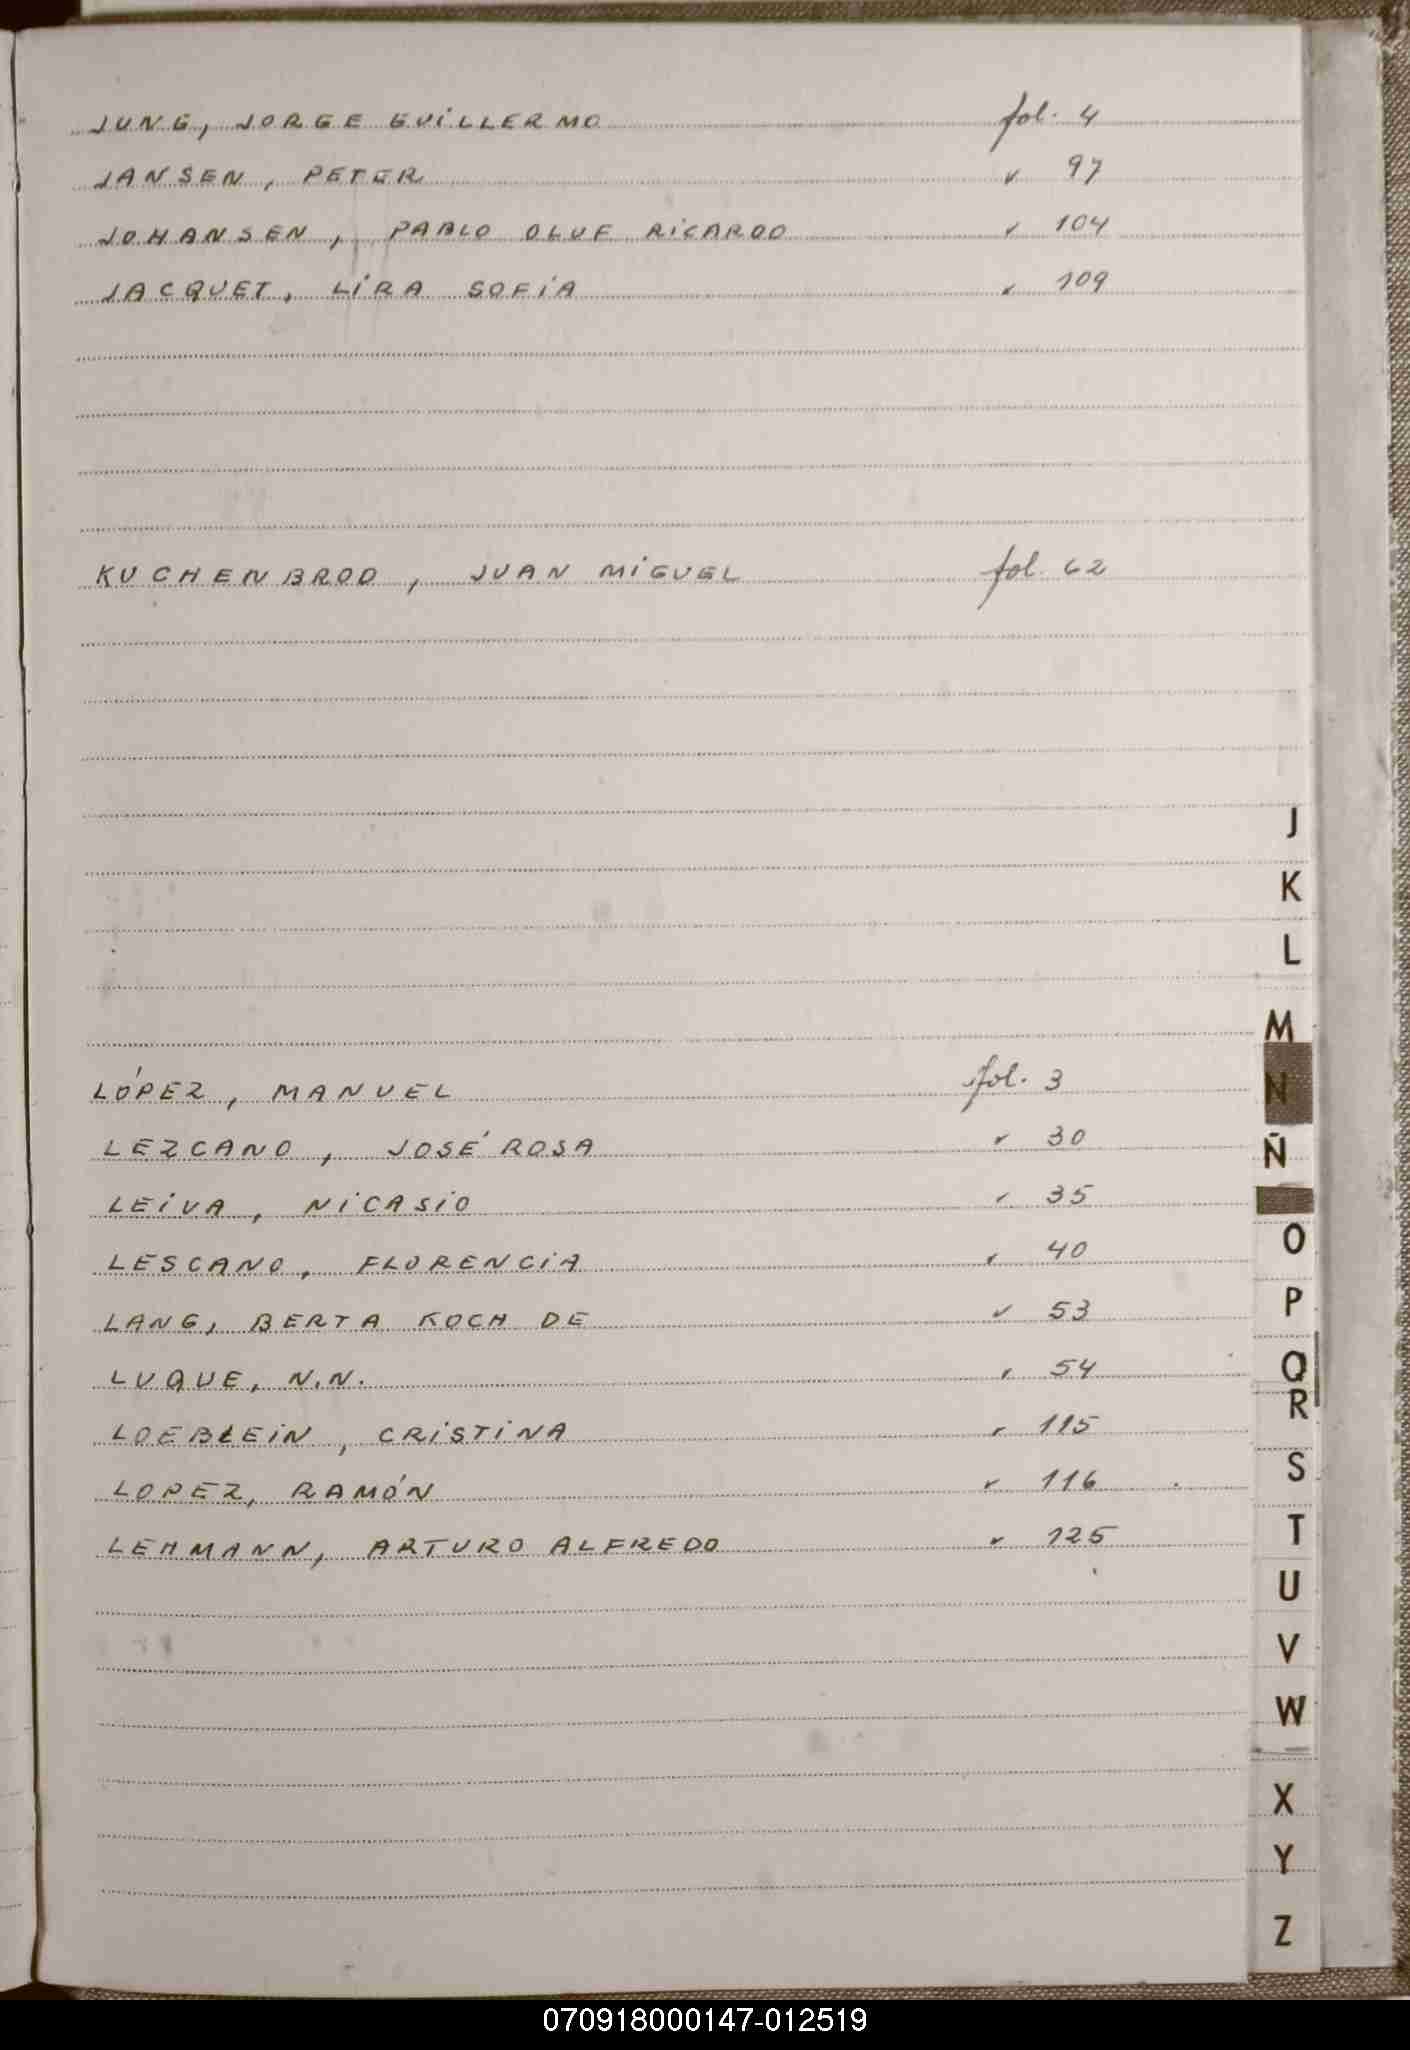 JUNG, JORGE GUILLERMO fol. 4
JANSEN, PETER " 97
JOHANSEN, PABLO OLUF RICARDO " 104
JACQUET, LIRA SOFIA " 109
KUCHENBROD, JUAN MIGUEL fol. 62
J
K
L
M
LÓPEZ, MANUEL fol. 3
N
LEZCANO, JOSÉ ROSA " 30
Ñ
LEIVA, NICASIO " 35
O
LESCANO, FLORENCIA " 40
P
LANG, BERTA KOCH DE " 53
Q
LUQUE, N.N. " 54
R
LOEBLEIN, CRISTINA " 115
S
LOPEZ, RAMÓN " 116
T
LEHMANN, ARTURO ALFREDO " 125
U
V
W
X
Y
Z
070918000147-012519